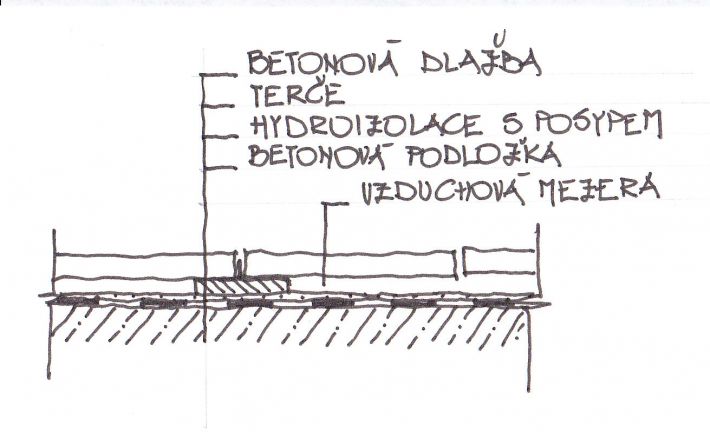 BETONOVÁ DLAŽBA
TERČE
HYDROIZOLACE S POSYPEM
BETONOVÁ PODLOŽKA
VZDUCHOVÁ MEZERA